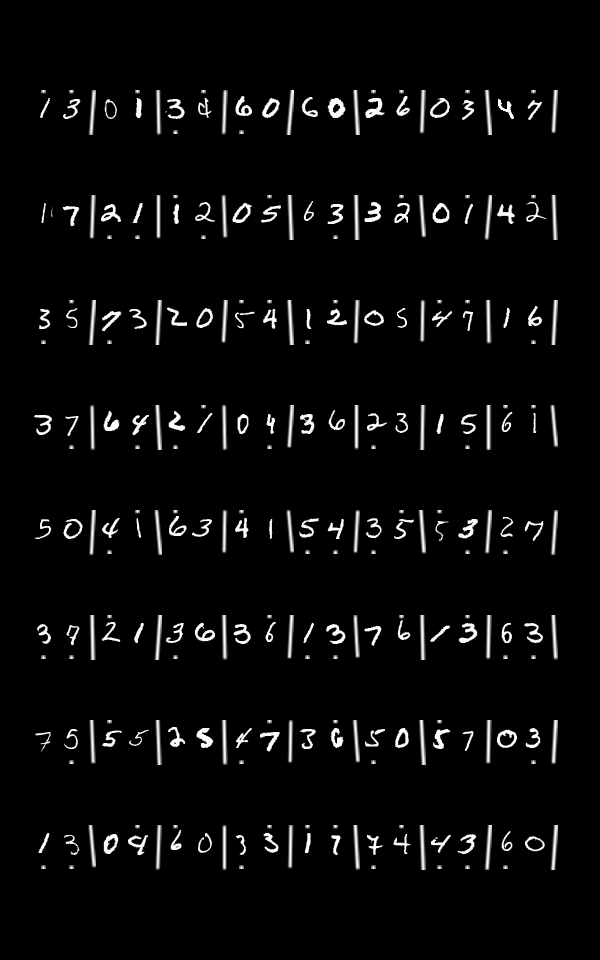 1̇ 3̇ | 0 1̇ | 3̣ 4̇ | 6̣ 0 | 6 0 | 2̇ 6̇ | 0 3̇ | 4 7̇ |
1 7 | 2̣ 1̣ | 1̇ 2̣ | 0 5̇ | 6 3̣ | 3 2̇ | 0 1̇ | 4 2̇ |
3̣ 5 | 7̣ 3 | 2 0 | 5̇ 4̇ | 1̣ 2̇ | 0 5 | 4̇ 7̇ | 1 6̣ |
3 7̣ | 6 4̣ | 2̣ 1̇ | 0 4̣ | 3 6 | 2̣ 3 | 1 5̣ | 6̇ 1̇ |
5 0 | 4̣ 1̇ | 6̇ 3 | 4̇ 1 | 5̣ 4̣ | 3̣ 5̇ | 5̇ 3̣ | 2̣ 7 |
3̣ 4̣ | 2̇ 1 | 3̣ 6 | 3 6̇ | 1̣ 3̣ | 7 6̇ | 1 3̇ | 6̣ 3̣ |
7 5̣ | 5̇ 5 | 2 5 | 4̣ 7 | 3 6̇ | 5̣ 0 | 5̇ 7 | 0 3̣ |
1̣ 3̣ | 0 4 | 6̇ 0 | 3̣ 3̇ | 1̇ 7 | 7̣ 4̇ | 4̣ 3̣ | 6̣ 0 |